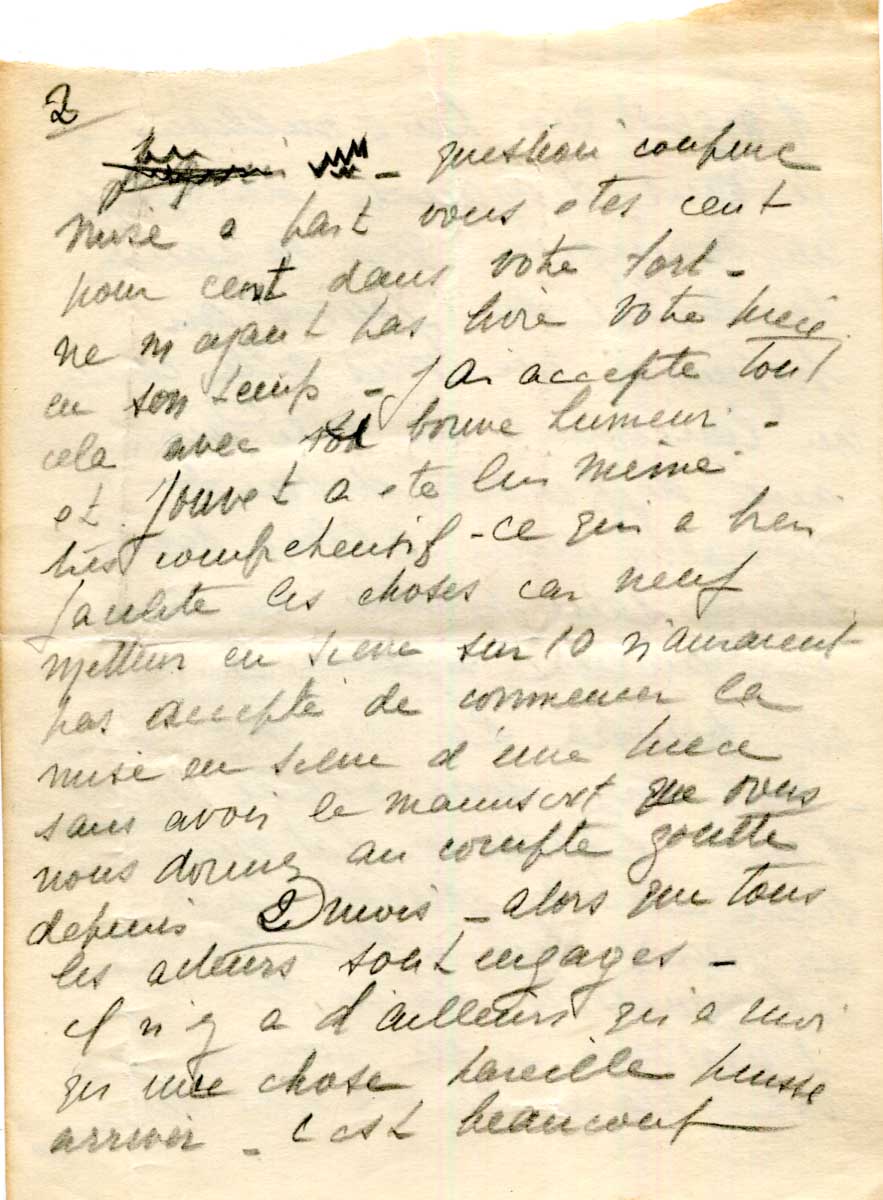 2
question coupure
mise a part vous etes cent
pour cent dans votre tort -
ne m'ayant pas livre votre piece
en son temps - J ai accepte tout
cela avec bonne humeur -
et Jouvet a ete lui même
très comprehensif - ce qui a bien
facilite les choses car neuf
metteur en scene sur 10 n'auraient
pas accepté de commencer la
mise en scene d'une piece
sans avoir le manuscrit que vous
nous donnez au compte goutte
depuis 2 mois - alors que tous
les acteurs sont engages -
il n y a d'ailleurs qu a moi
qu une chose pareille puisse
arriver - c est beaucoup